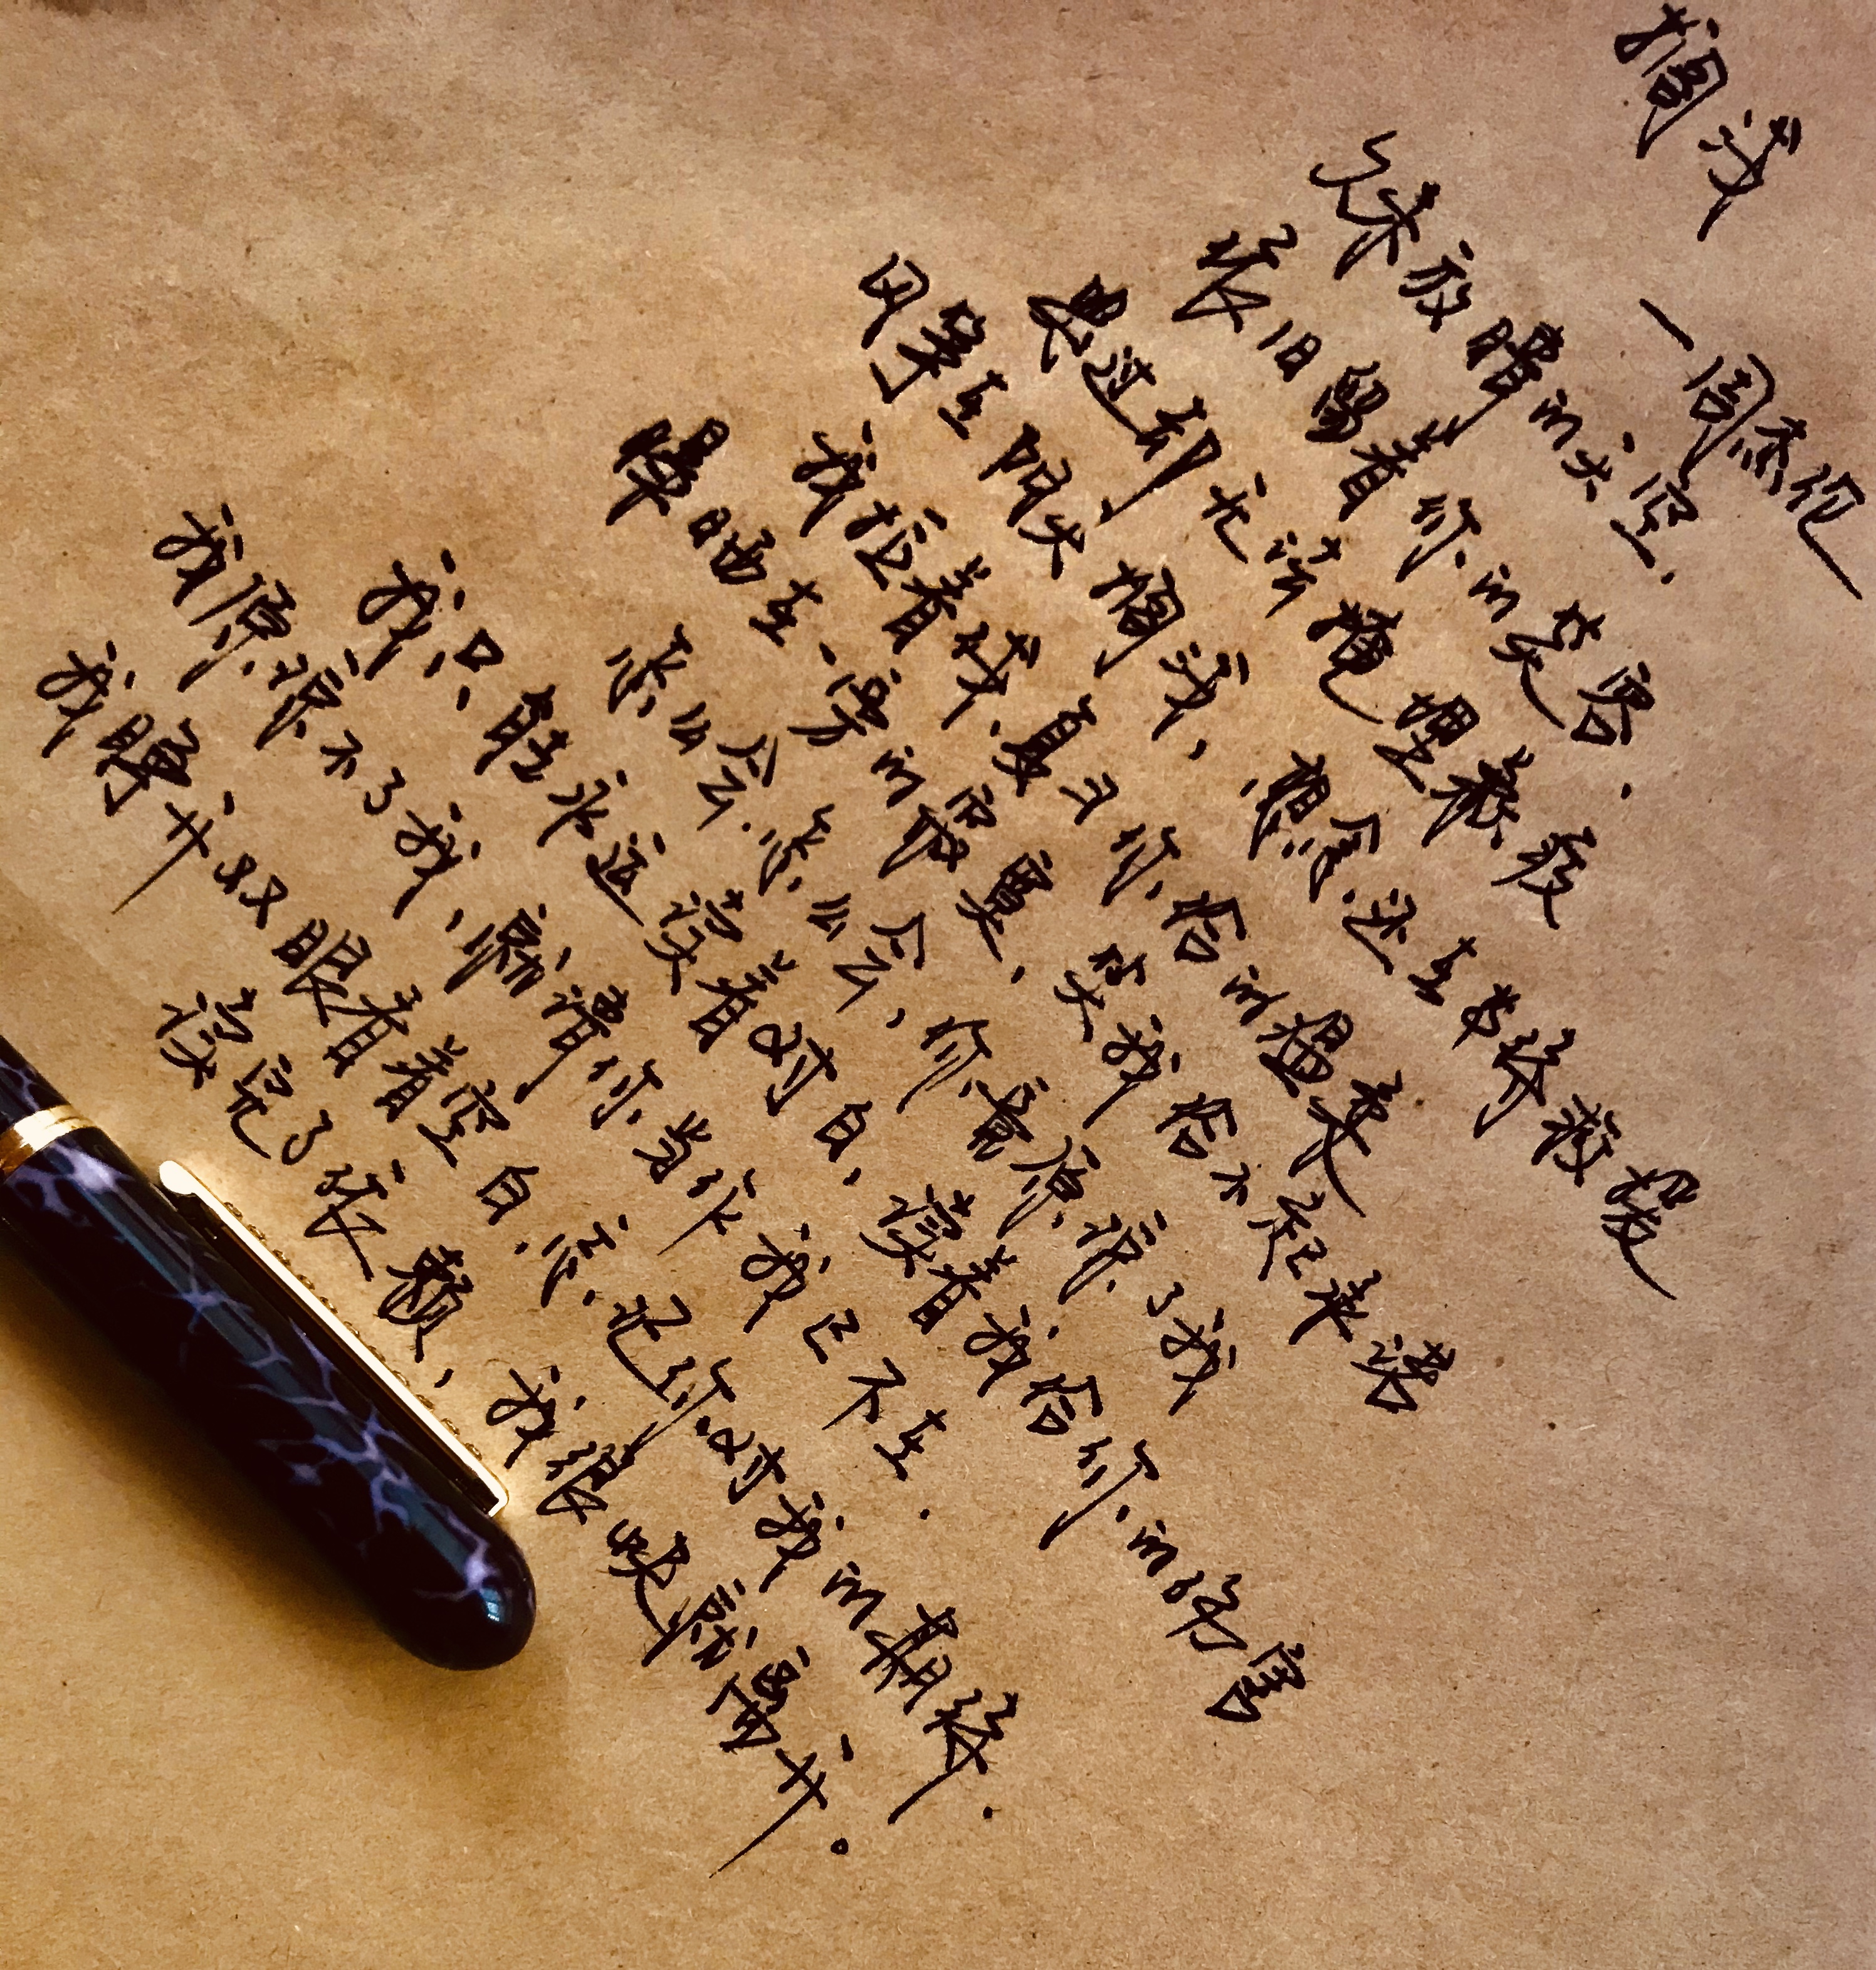 搁浅
—周杰伦
久未放晴的天空.
依旧留着你的笑容.
哭过却无法掩埋歉疚
风筝在阴天搁浅,想念还在等待救援
我拉着线复习你给的温柔
曝晒在一旁的寂寞,笑我给不起承诺
怎么会怎么会,你竟原谅了我
我只能永远读着对白,读着我给你的伤害
我原谅不了我,就请你当作我已不在.
我睁开双眼看着空白,忘记你对我的期待.
读完了依赖,我很快就离开。